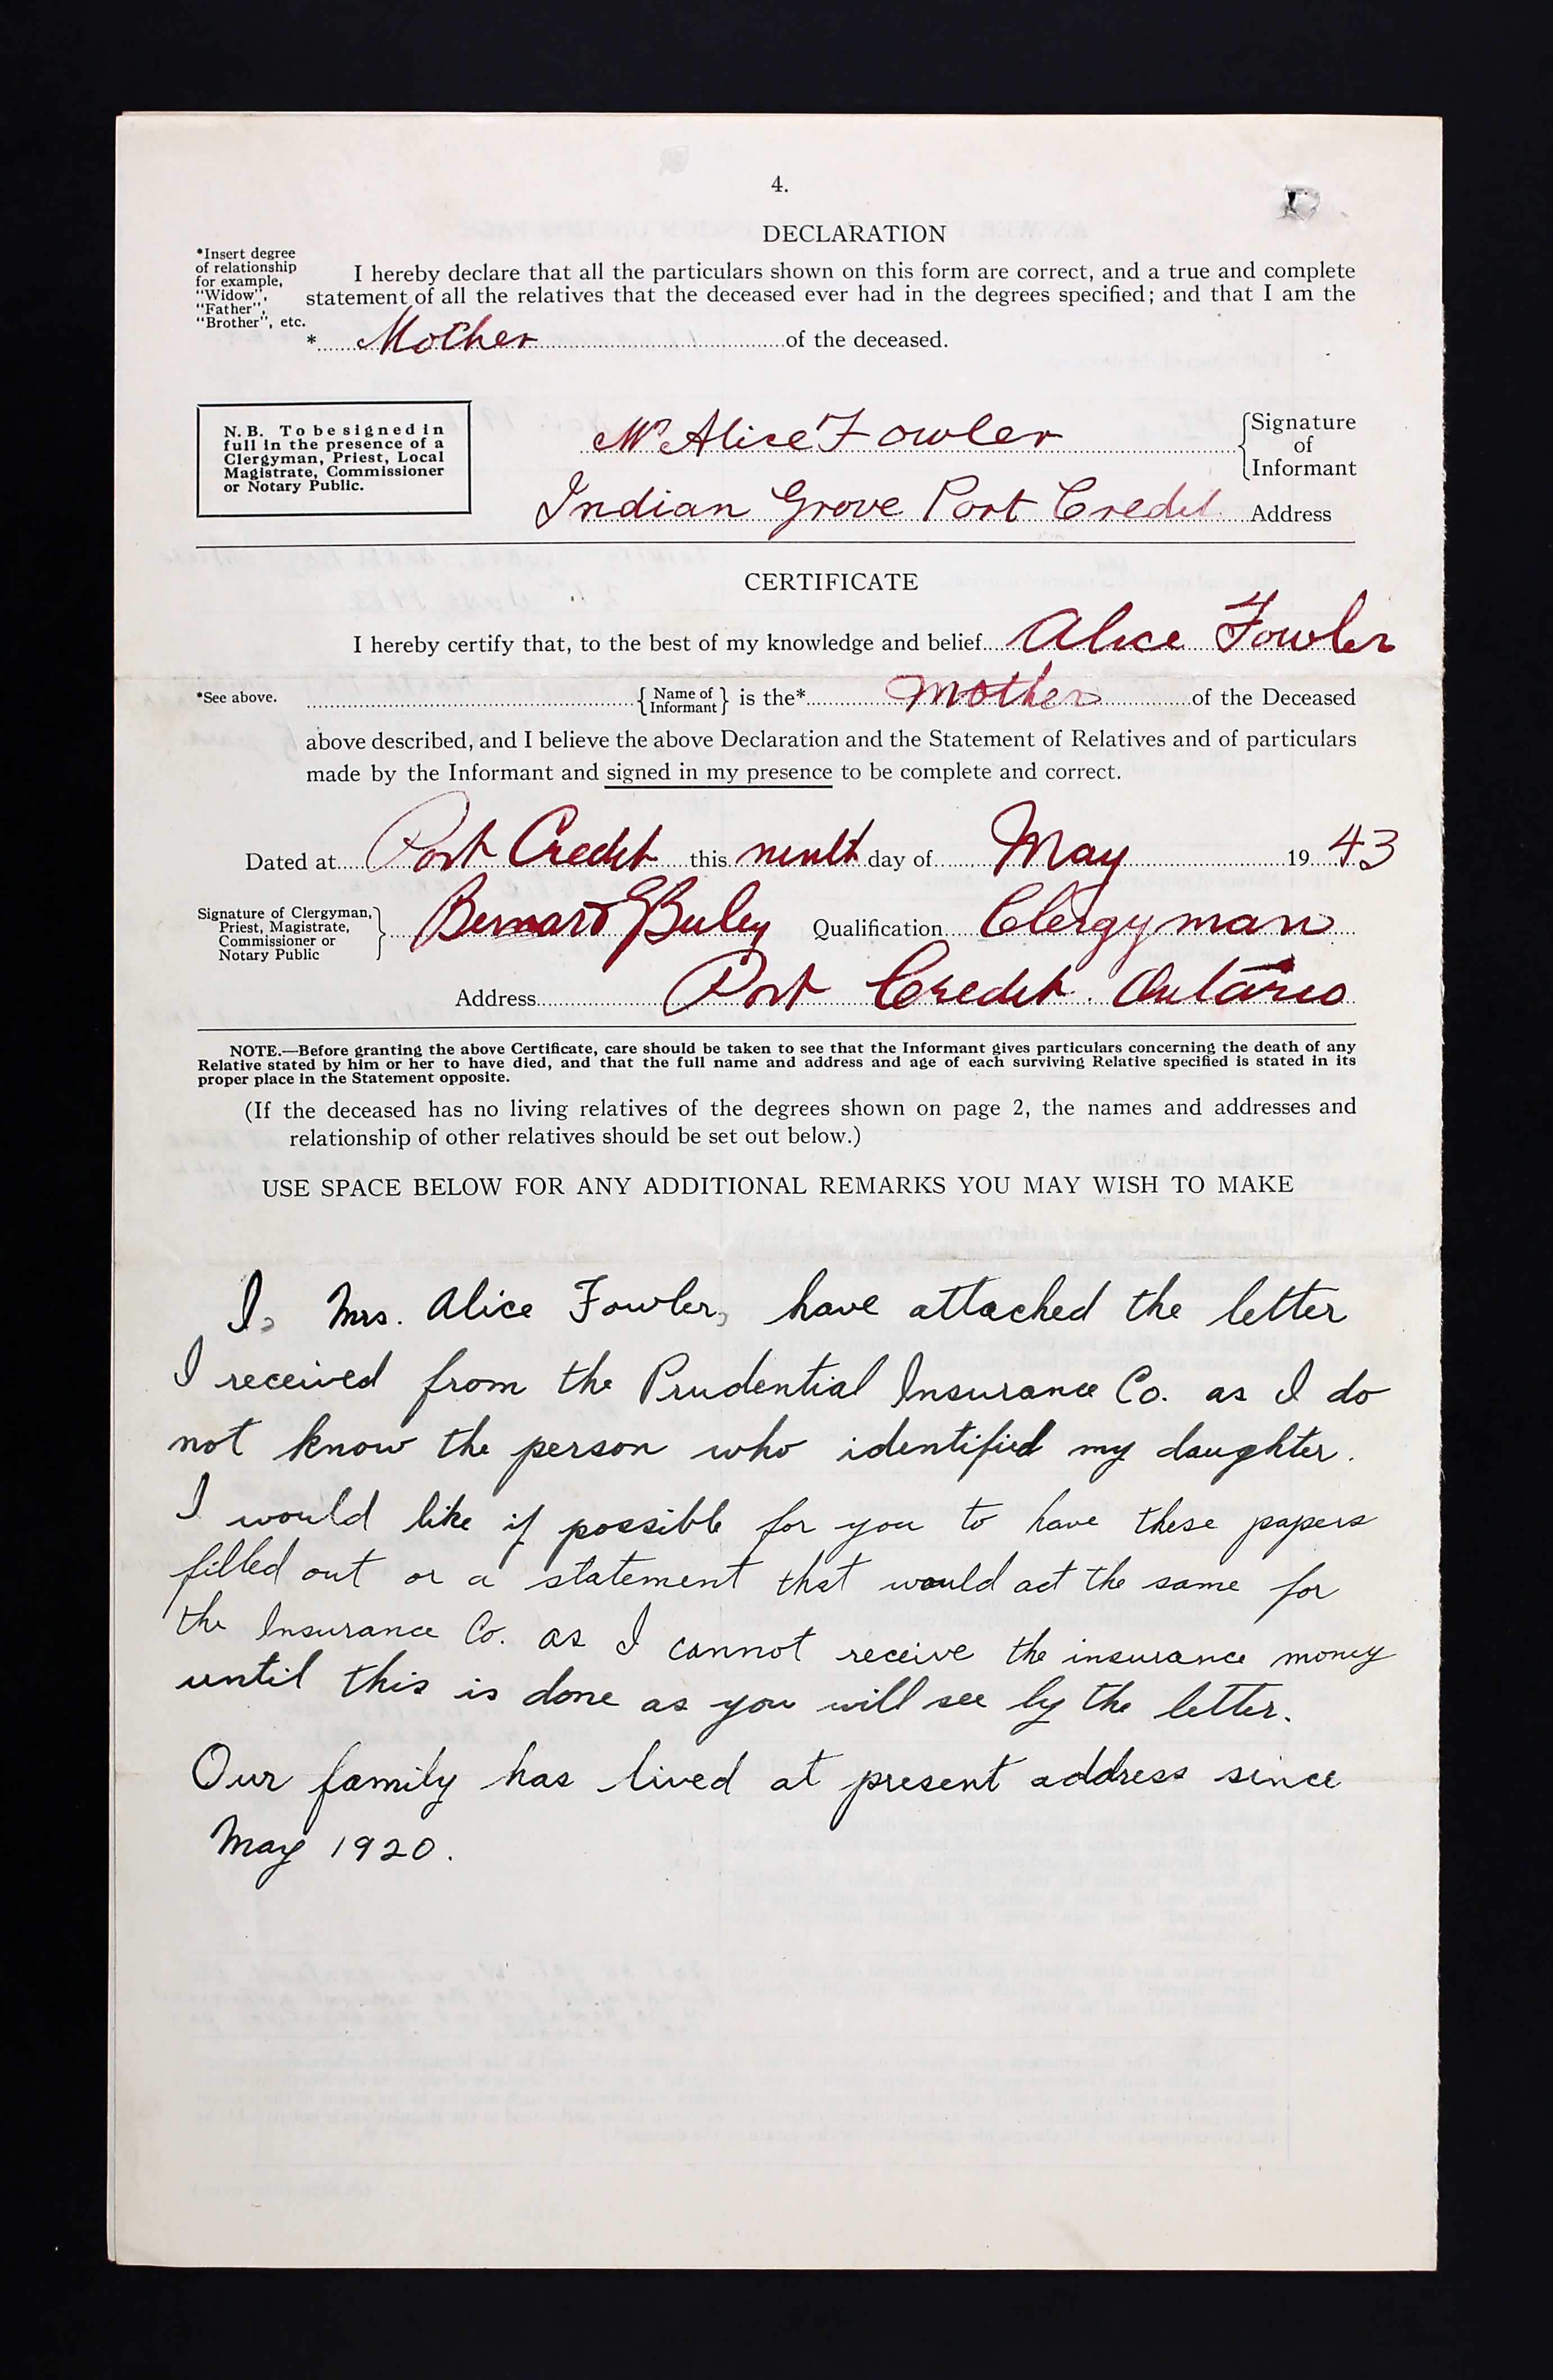 4.
DECLARATION
*Insert degree
of relationship
for example,
"Widow",
"Father",
"Brother", etc.
I hereby declare that all the particulars shown on this form are correct, and a true and complete
statement of all the relatives that the deceased ever had in the degrees specified; and that I am the
* Mother of the deceased.
N. B. To be signed in
full in the presence of a
Clergyman, Priest, Local
Magistrate, Commissioner
or Notary Public.
Mrs Alice Fowler
Signature
of
Informant
Indian Grove Port Credit Address
CERTIFICATE
I hereby certify that, to the best of my knowledge and belief Alice Fowler
*See above. { Name of Informant } is the* Mother of the Deceased
above described, and I believe the above Declaration and the Statement of Relatives and of particulars
made by the Informant and signed in my presence to be complete and correct.
Dated at Port Credit this ninth day of May 19 43
Signature of Clergyman,
Priest, Magistrate,
Commissioner or
Notary Public
Bernard Buley Qualification Clergyman
Address Port Credit. Ontario
NOTE.—Before granting the above Certificate, care should be taken to see that the Informant gives particulars concerning the death of any
Relative stated by him or her to have died, and that the full name and address and age of each surviving Relative specified is stated in its
proper place in the Statement opposite.
(If the deceased has no living relatives of the degrees shown on page 2, the names and addresses and
relationship of other relatives should be set out below.)
USE SPACE BELOW FOR ANY ADDITIONAL REMARKS YOU MAY WISH TO MAKE
I, Mrs. Alice Fowler, have attached the letter
I received from the Prudential Insurance Co. as I do
not know the person who identified my daughter.
I would like if possible for you to have these papers
filled out or a statement that would act the same for
the Insurance Co. as I cannot receive the insurance money
until this is done as you will see by the letter.
Our family has lived at present address since
May 1920.